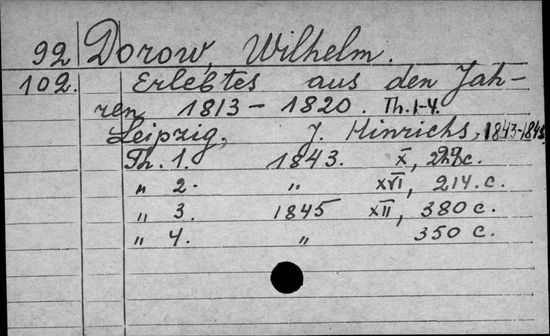 92 Dorow, Wilhelm.
102. Erlebtes aus den Jah-
ren 1813 - 1820. Th. 1-4.
Leipzig, J. Hinrichs, 1843-1845.
Th. 1. 1843. X, 227 c.
" 2. " XVI, 214. c.
" 3. 1845 XII, 380 c.
" 4. " 350 c.